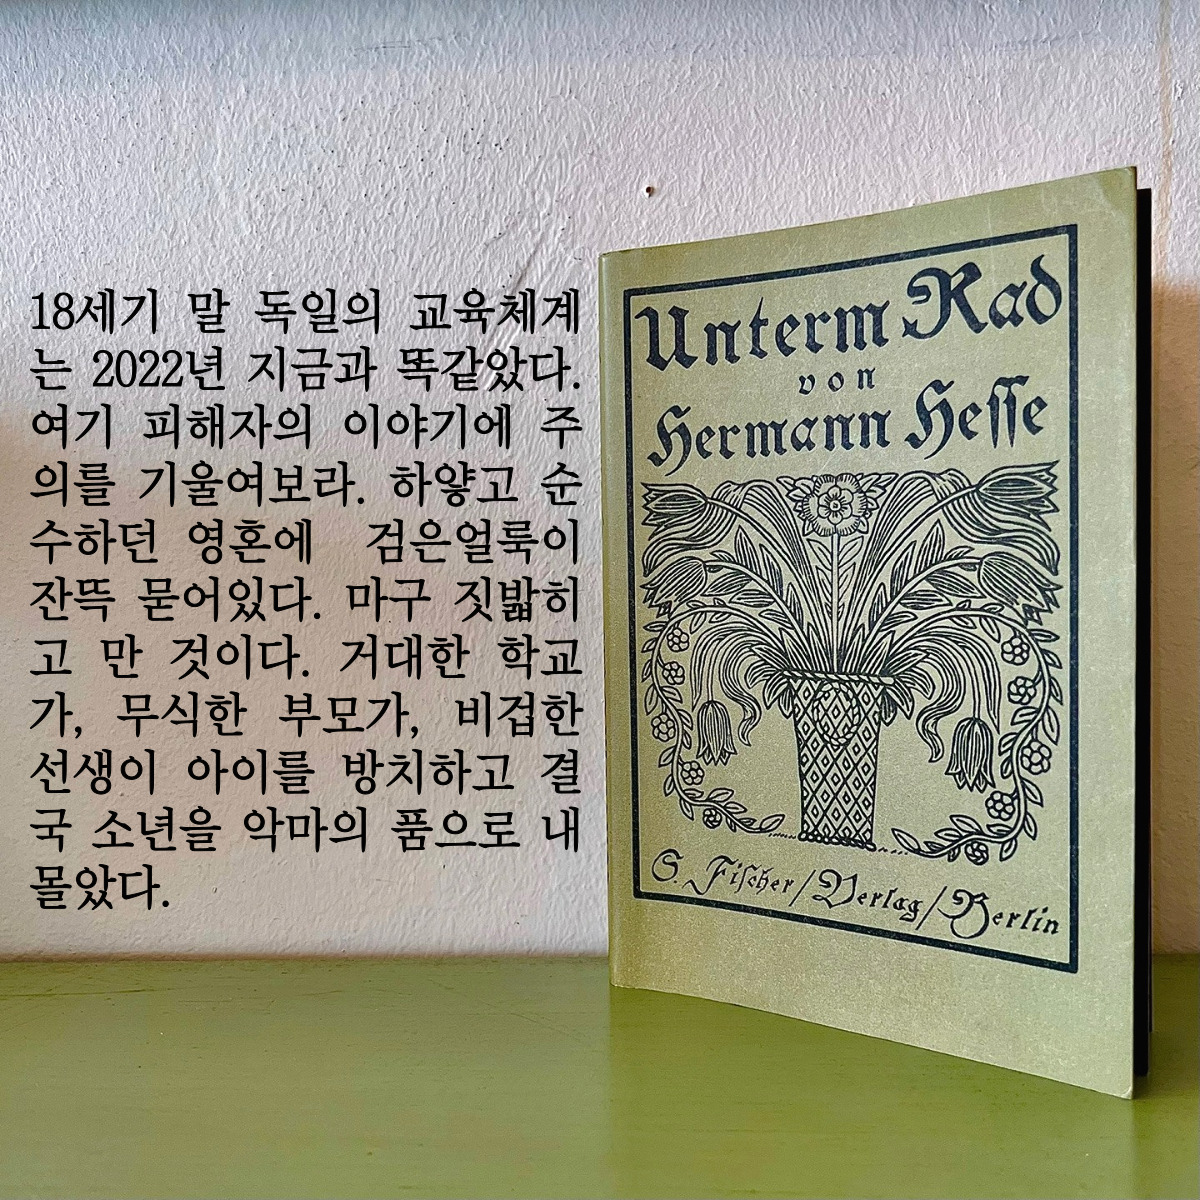 18세기 말 독일의 교육체계
는 2022년 지금과 똑같았다.
여기 피해자의 이야기에 주
의를 기울여보라. 하얗고 순
수하던 영혼에 검은얼룩이
잔뜩 묻어있다. 마구 짓밟히
고 만 것이다. 거대한 학교
가, 무식한 부모가, 비겁한
선생이 아이를 방치하고 결
국 소년을 악마의 품으로 내
몰았다.
Unterm Rad
von
Hermann Hesse
S. Fischer/Verlag/Berlin